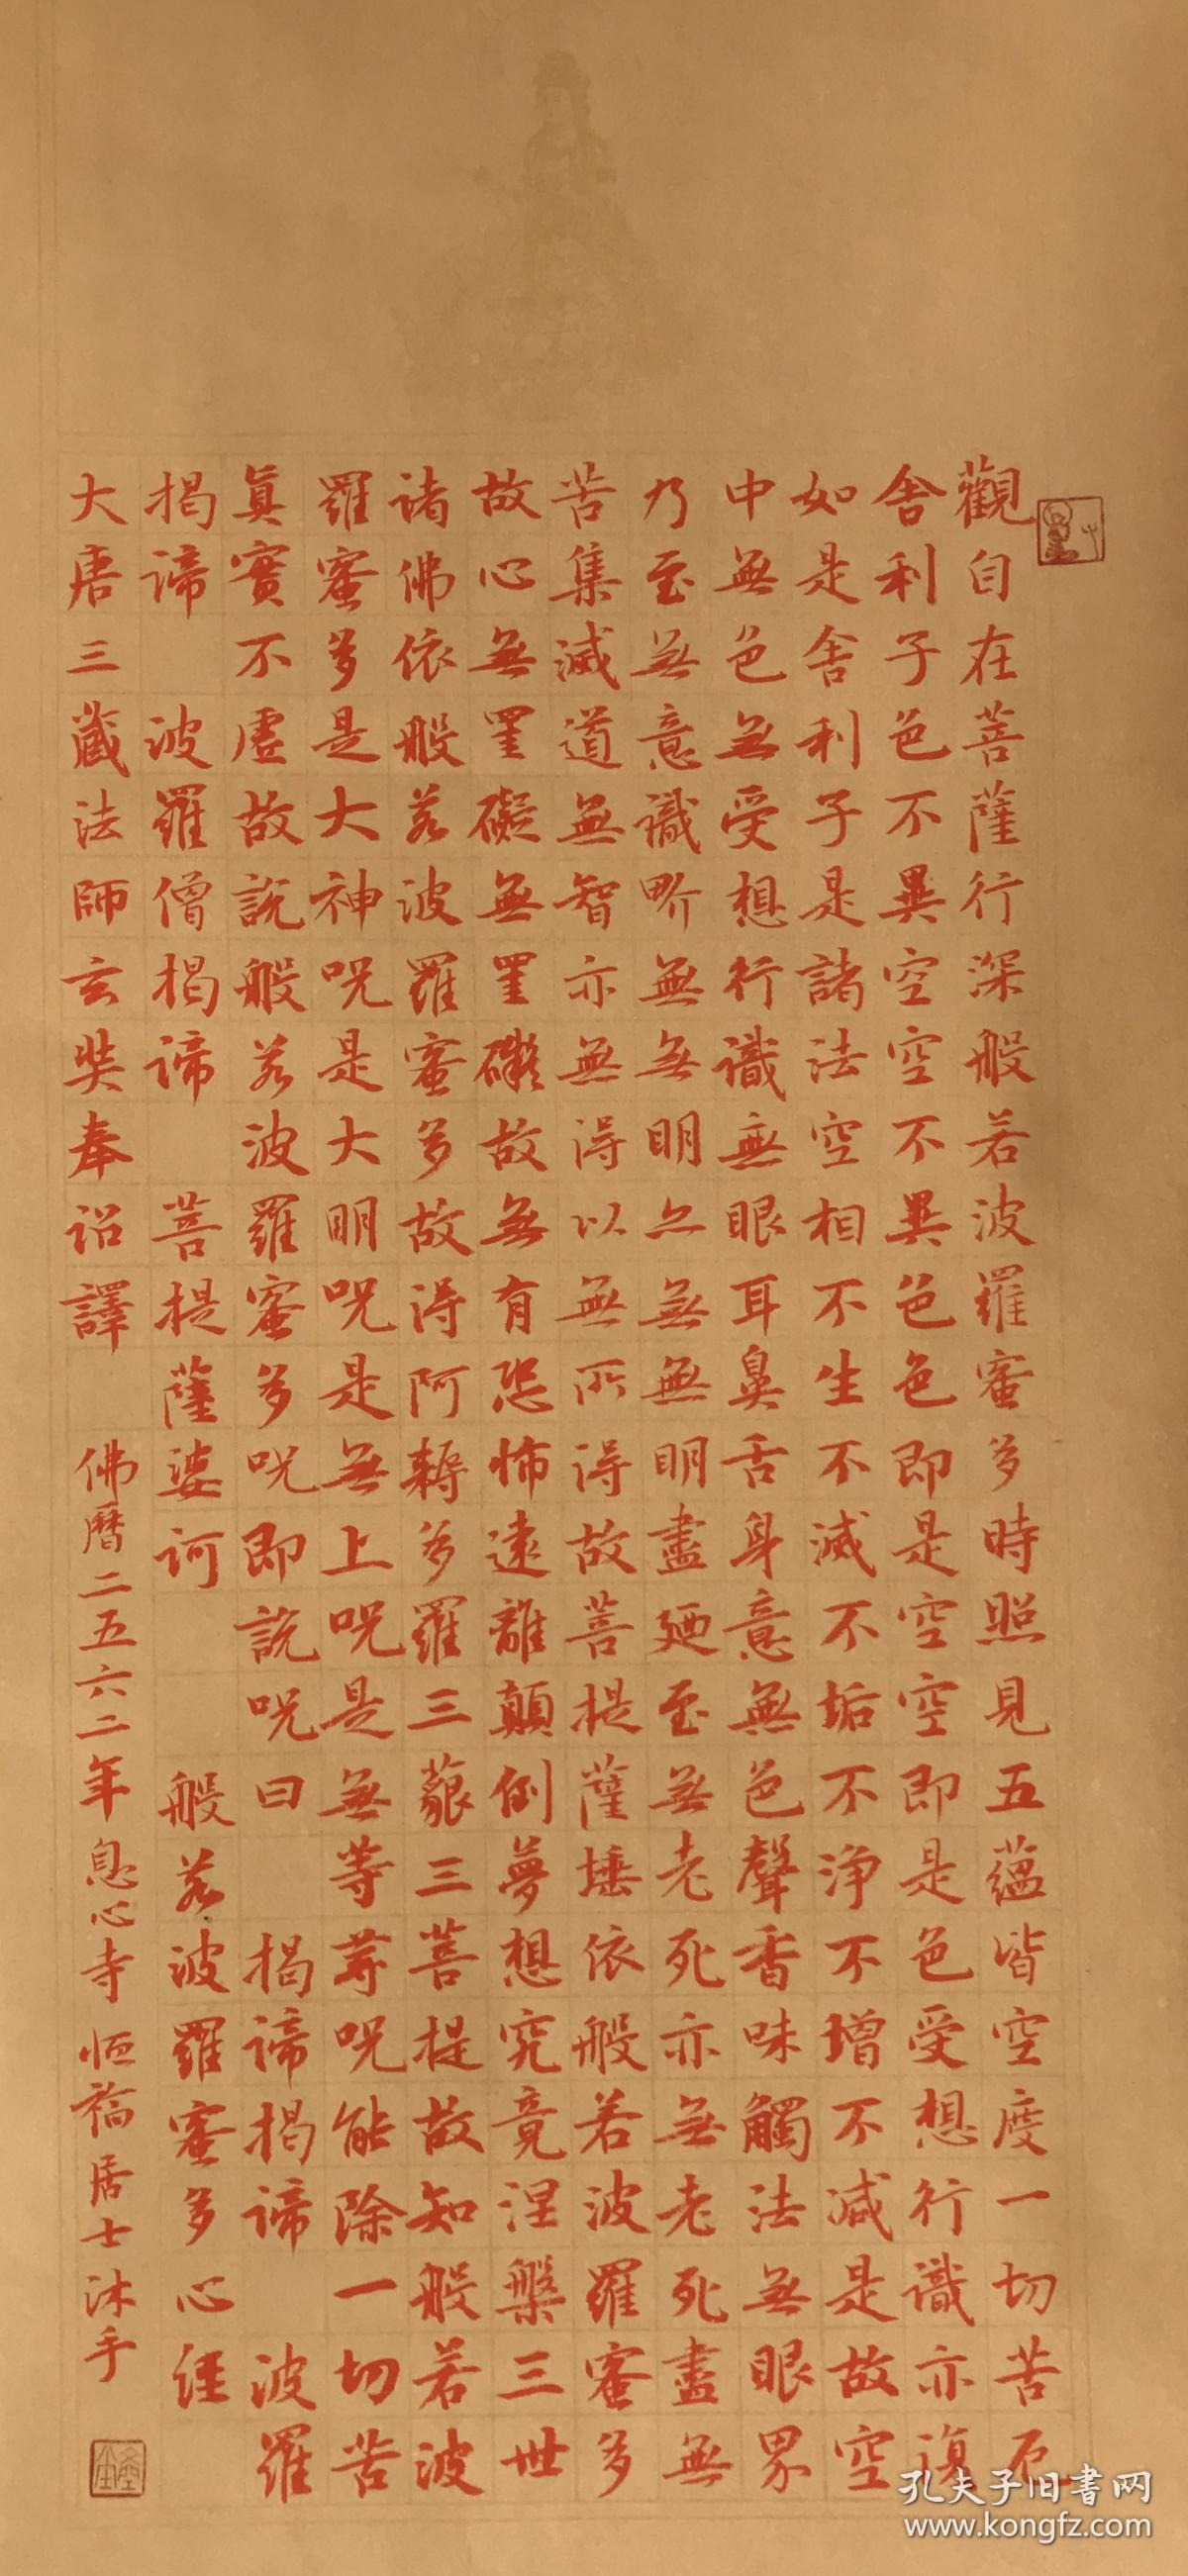 觀自在菩薩行深般若波羅蜜多時照見五蘊皆空度一切苦厄
舍利子色不異空空不異色色即是空空即是色受想行識亦復
如是舍利子是諸法空相不生不滅不垢不净不增不減是故空
中無色無受想行識無眼耳鼻舌身意無色聲香味觸法無眼界
乃至無意識界無無明亦無無明盡廼至無老死亦無老死盡無
苦集滅道無智亦無得以無所得故菩提薩埵依般若波羅蜜多
故心無罣礙無罣礙故無有恐怖遠離顛倒夢想究竟涅槃三世
諸佛依般若波羅蜜多故得阿耨多羅三藐三菩提故知般若波
羅蜜多是大神咒是大明咒是無上咒是無等等咒能除一切苦
真實不虛故說般若波羅蜜多咒即說咒曰 揭諦揭諦 波羅
揭諦 波羅僧揭諦 菩提薩婆訶 般若波羅蜜多心经
大唐三藏法師玄奘奉詔譯 佛曆二五六二年息心寺恒福居士沐手
孔夫子旧書网
www.kongfz.com